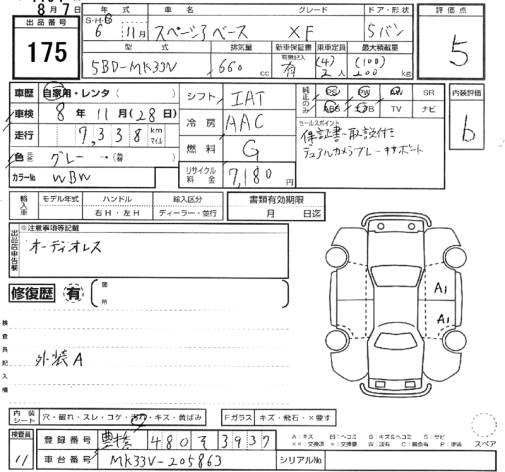 8月7
出品番号
175
S・H・R
年式 車名 グレード ドア・形状
6 11月 スペーシアベース XF 5バン
型式 排気量 新車保証書 乗車定員 最大積載量
有無記入
5BD-MK33V 660cc 有 (4) 2人 (100) 200kg
評価点
5
車歴 自家用・レンタ( )
車検 8年11月(28日)
走行 7,338 km マイル
色 グレー→(替)
カラーNo. WBW
シフト IAT
冷房 AAC
燃料 G
リサイクル料金 7,180円
純正のみ
PS PW AW SR
ABS エアB TV ナビ
セールスポイント
保証書・取説付き
デュアルカメラブレーキサポート
内装評価
b
輸入車 モデル年式 ハンドル 輸入区分
年 右H・左H ディーラー・並行
書類有効期限
月 日迄
出品店申告欄
※注意事項等記載
オーディオレス
修復歴 有 箇所
検査員記入欄
外装A
A1
A1
内装シート 穴・破れ・スレ・コゲ・汚れ・キズ・黄ばみ
Fガラス キズ・飛石・×要す
検査員
11
登録番号 豊橋 480 そ 3937
A:キズ U:ヘコミ B:キズ&ヘコミ S:サビ
××:交換済 ×:要交換 W:波 C:腐食 P:塗装
スペア
車台番号 MK33V-205863
シリアルNo.